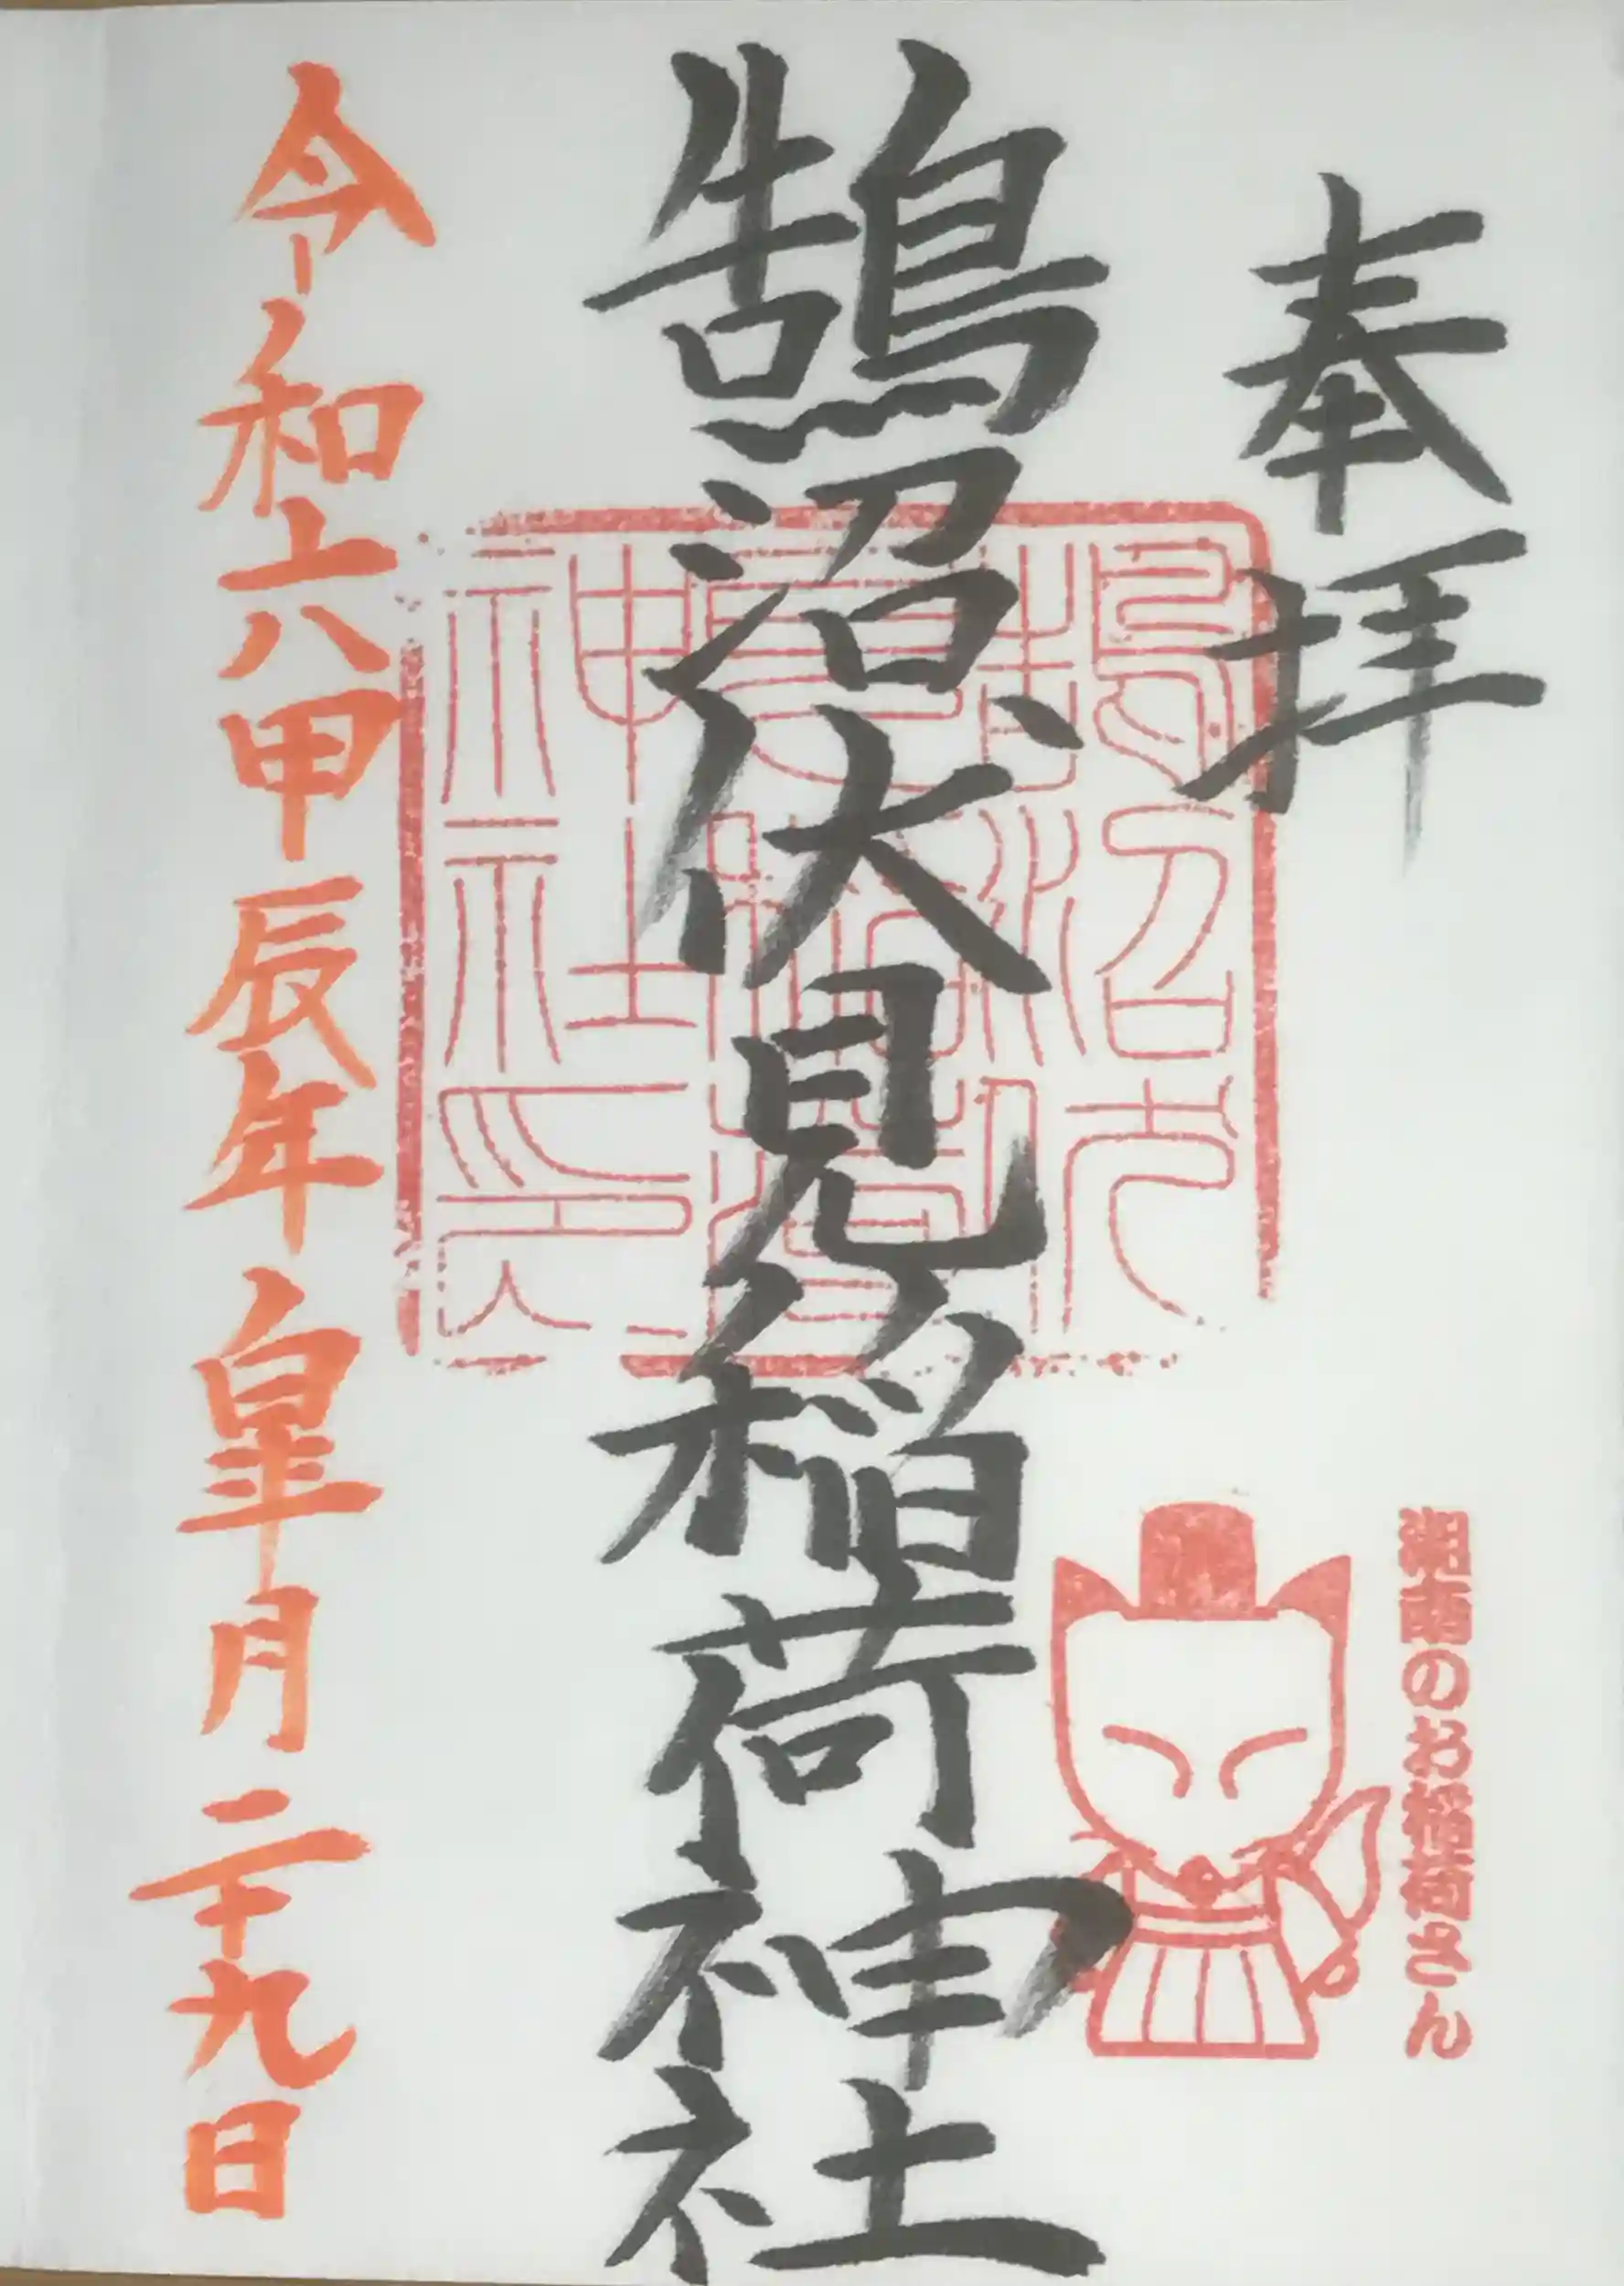 奉拝
湘南のお稲荷さん
鵠沼伏見稲荷神社
鵠沼伏
見稲荷
神社印
令和六甲辰年皐月二十九日